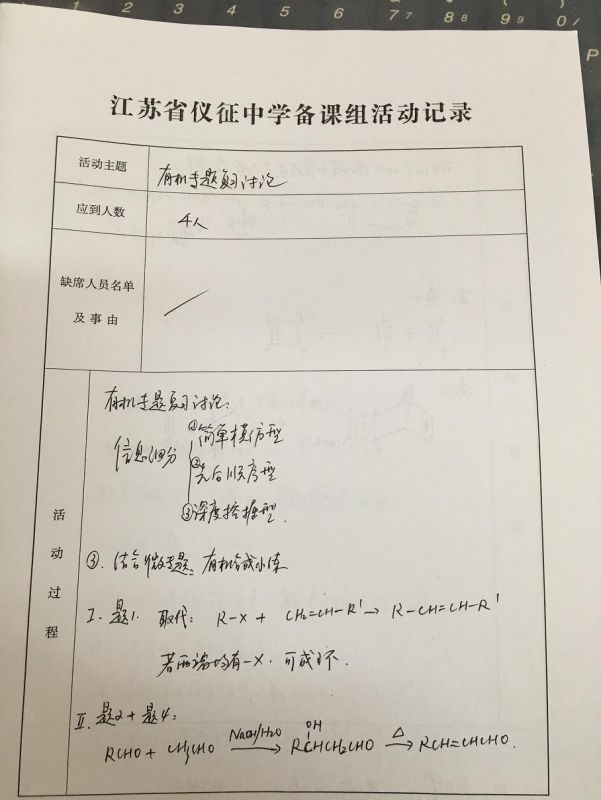 1 2 3 4 5 6 7 7 8 8 9 9 0 /
P
江苏省仪征中学备课组活动记录
活动主题 有机专题复习讨论
应到人数 4人
缺席人员名单
及事由
活动过程
有机专题复习讨论:
信息细分
①简单模仿型
②先后顺序型
③深度挖掘型.
③. 结合微专题: 有机合成小练
I. 题1. 取代: R-X + CH₂=CH-R' → R-CH=CH-R'
若两端均有-X, 可成环.
II. 题2+题4:
RCHO + CH₃CHO NaOH/H2O → RCHCH₂CHO △ → RCH=CHCHO.
OH